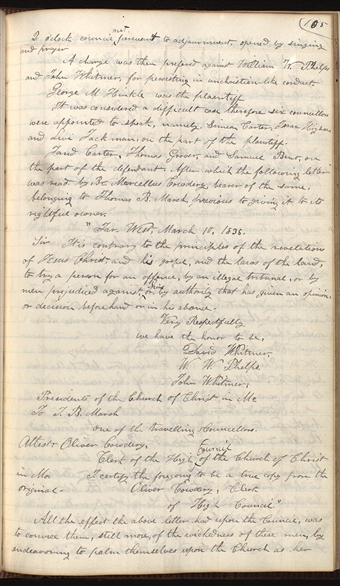 105
2 oclock council met pursuant to adjournment, opened by singing
and prayer
A charge was then prefered against William W. Phelps
and John Whitmer, for persisting in unchristian-like conduct
George M Hinkle was the plaintiff
It was considered a difficult case therefore six councillors
were appointed to speak, namely, Simeon Carter, Isaac Higbee
and Levi Jackman, on the part of the plaintiff.
Jared Carter, Thomas Grover, and Samuel Bent, on
the part of the defendant. After which the following letter
was read by Br Marcellus Cowdery, bearer of the same,
belonging to Thomas B. Marsh previous to giving it to its
rightful owner.
"Far West, March 10, 1838.
Sir It is contrary to the principles of the revelations
of Jesus Christ, and his gospel, and the laws of the land,
to try a person for an offence, by an illegal tribunal, or by
men prejudiced against him, or by authority that has given an opinion,
or decision beforehand or in his absence.
Very Respectfully
we have the honor to be,
David Whitmer,
W W Phelps
John Whitmer,
Presidents of the Church of Christ in Mo
To T. B. Marsh
one of the travelling Councellors.
Attest Oliver Cowdery,
Clerk of the High Council of the Church of Christ
in Mo. I certify the foregoing to be a true copy from the
original. Oliver Cowdery, Clerk
of High Council"
All the effect the above letter had upon the Council, was
to convince them, still more, of the wickedness of these men, by
endeavoring to palm themselves upon the Church as her